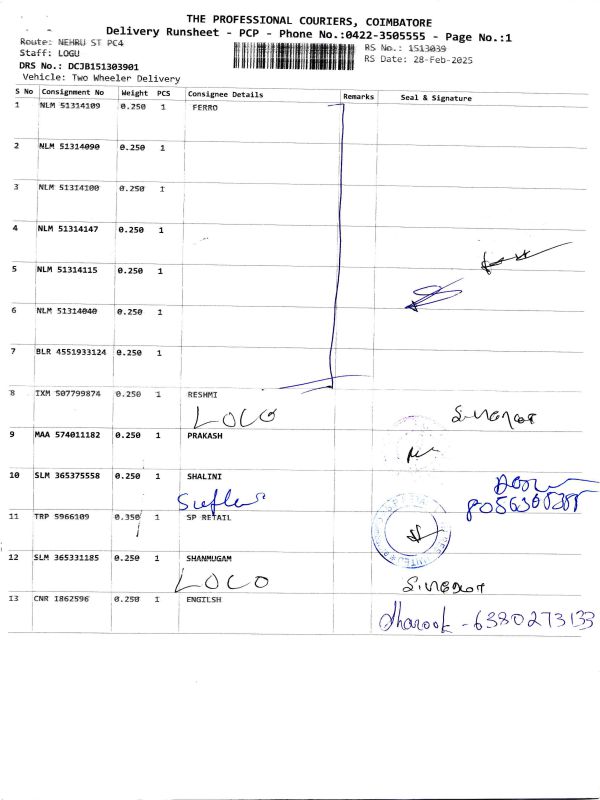 THE PROFESSIONAL COURIERS, COIMBATORE
Delivery Runsheet - PCP - Phone No.:0422-3505555 - Page No.:1
Route: NEHRU ST PC4
RS No.: 1513039
Staff: LOGU
RS Date: 28-Feb-2025
DRS No.: DCJB151303901
Vehicle: Two Wheeler Delivery
S No Consignment No Weight PCS Consignee Details Remarks Seal & Signature
1 NLM 51314109 0.250 1 FERRO
2 NLM 51314090 0.250 1
3 NLM 51314100 0.250 1
4 NLM 51314147 0.250 1
5 NLM 51314115 0.250 1
6 NLM 51314040 0.250 1
7 BLR 4551933124 0.250 1
8 IXM 507799874 0.250 1 RESHMI
LOCO
9 MAA 574011182 0.250 1 PRAKASH
10 SLM 365375558 0.250 1 SHALINI
11 TRP 5966109 0.350 1 SP RETAIL
12 SLM 365331185 0.250 1 SHANMUGAM
LOCO
13 CNR 1862596 0.250 1 ENGILSH
Sharook - 6380273133